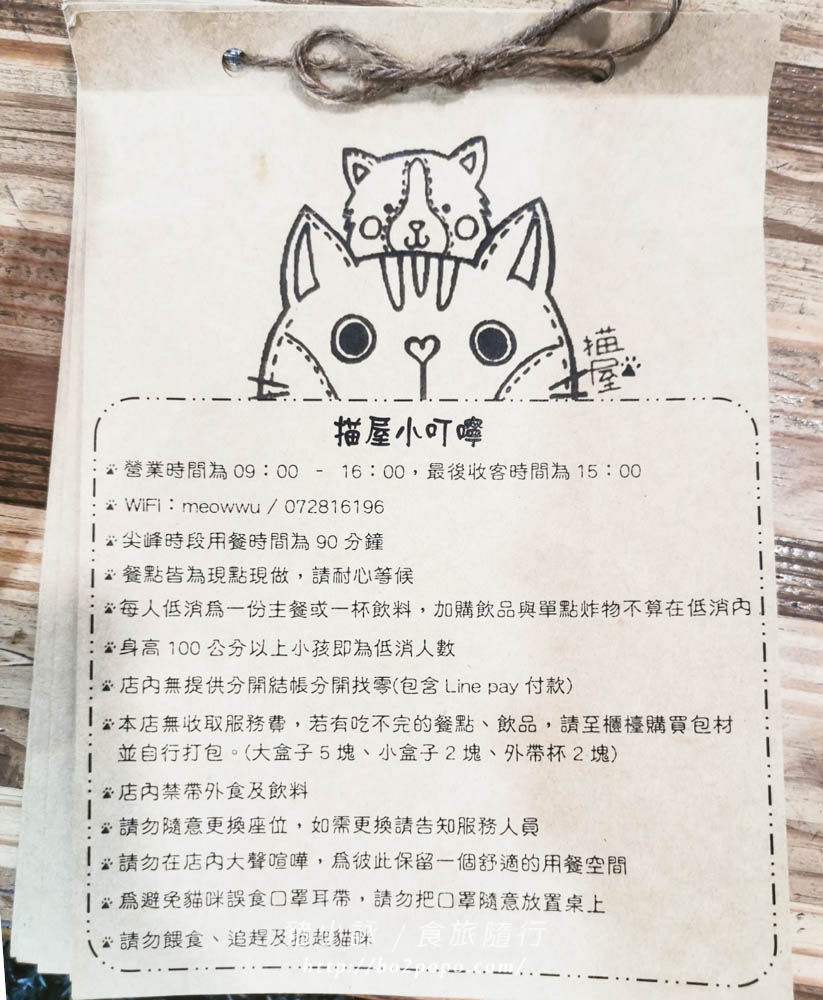 描屋
描屋小叮嚀
營業時間為 09：00 - 16：00，最後收客時間為 15：00
WiFi：meowwu / 072816196
尖峰時段用餐時間為 90 分鐘
餐點皆為現點現做，請耐心等候
每人低消為一份主餐或一杯飲料，加購飲品與單點炸物不算在低消內
身高 100 公分以上小孩即為低消人數
店內無提供分開結帳分開找零(包含 Line pay 付款)
本店無收取服務費，若有吃不完的餐點、飲品，請至櫃檯購買包材
並自行打包。(大盒子 5 塊、小盒子 2 塊、外帶杯 2 塊)
店內禁帶外食及飲料
請勿隨意更換座位，如需更換請告知服務人員
請勿在店內大聲喧嘩，為彼此保留一個舒適的用餐空間
為避免貓咪誤食口罩耳帶，請勿把口罩隨意放置桌上
請勿餵食、追趕及抱起貓咪
食旅隨行
https://bo2popo.com/